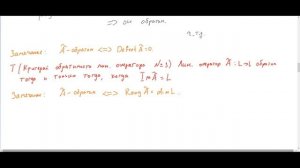 => он обратим.
ч.т.д.
Замечание: Â - обратим <=> Defect Â = 0.
Т (Критерий обратимости лин. оператора N≥1) Лин. оператор Â: L→L обратим
тогда и только тогда, когда Im Â = L
Замечание: Â - обратим <=> Rang Â = dim L.